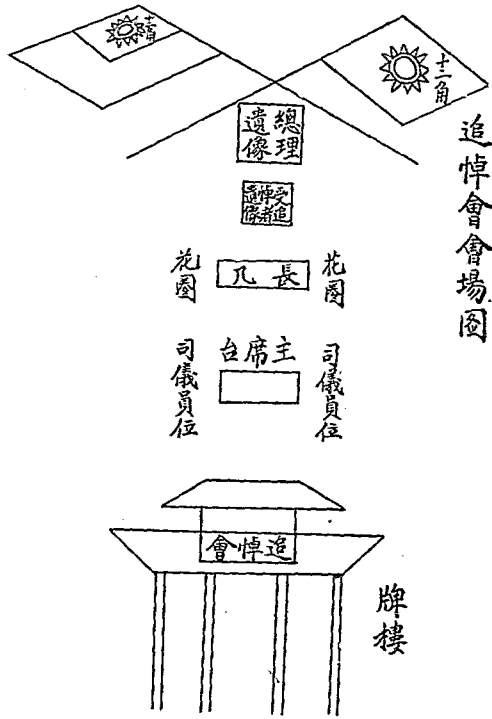 追悼會會場図
十二角
十二角
總理
遺像
受追
悼者
遺像
花圈
長几
花圈
主席台
司儀員位
司儀員位
追悼會
牌樓